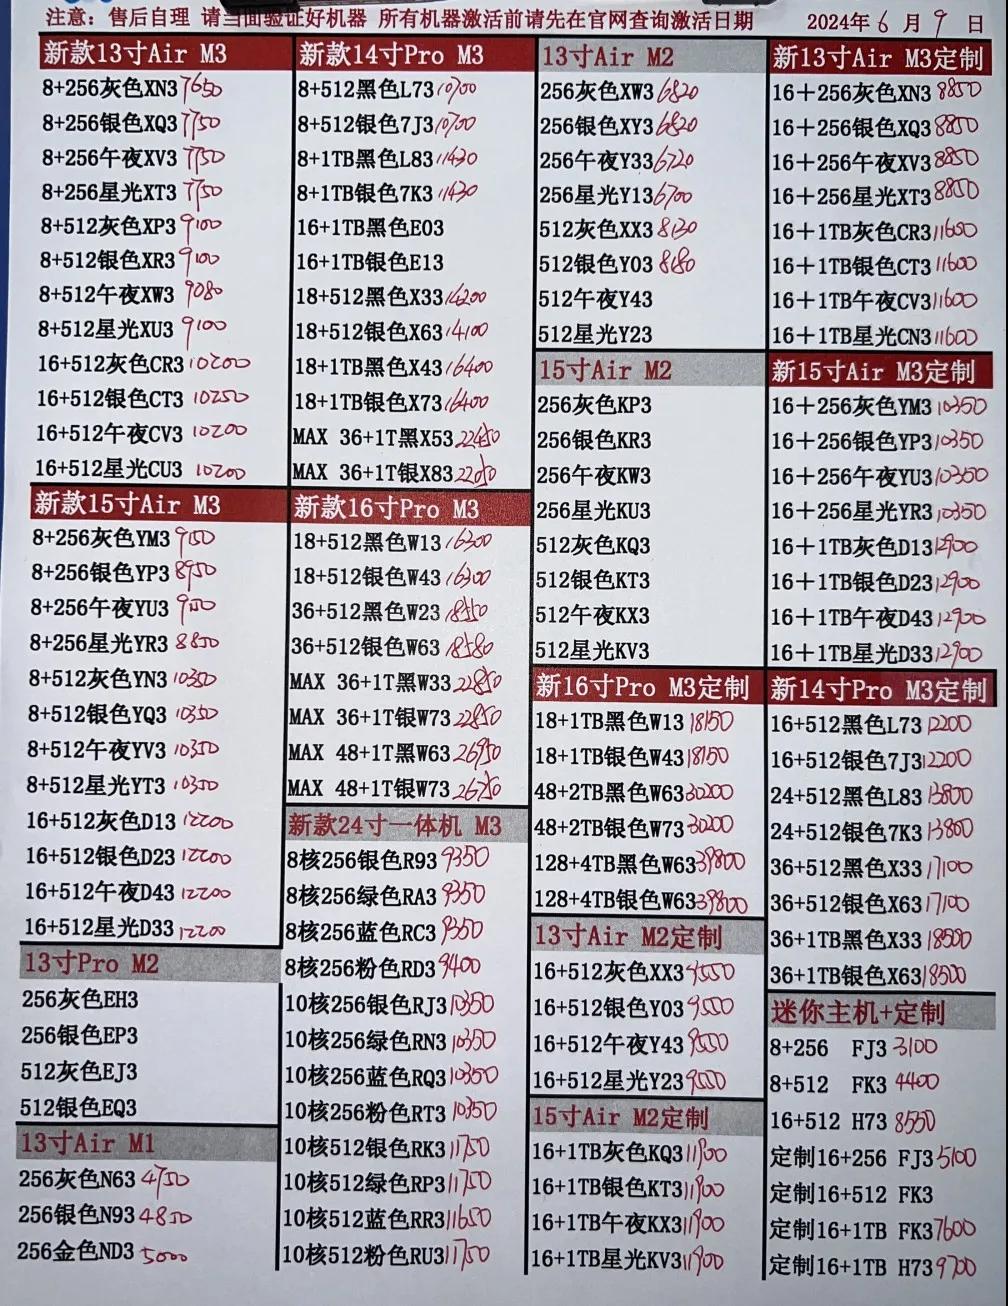 注意：售后自理 请当面验证好机器 所有机器激活前请先在官网查询激活日期 2024年6月9日
新款13寸Air M3
8+256灰色XN3 7650
8+256银色XQ3 7750
8+256午夜XV3 7750
8+256星光XT3 7750
8+512灰色XP3 9100
8+512银色XR3 9100
8+512午夜XW3 9080
8+512星光XU3 9100
16+512灰色CR3 10200
16+512银色CT3 10250
16+512午夜CV3 10200
16+512星光CU3 10200
新款15寸Air M3
8+256灰色YM3 9150
8+256银色YP3 8950
8+256午夜YU3 9150
8+256星光YR3 8850
8+512灰色YN3 10350
8+512银色YQ3 10350
8+512午夜YV3 10350
8+512星光YT3 10350
16+512灰色D13 12200
16+512银色D23 12200
16+512午夜D43 12200
16+512星光D33 12200
13寸Pro M2
256灰色EH3
256银色EP3
512灰色EJ3
512银色EQ3
13寸Air M1
256灰色N63 4750
256银色N93 4850
256金色ND3 5000
新款14寸Pro M3
8+512黑色L73 10700
8+512银色7J3 10700
8+1TB黑色L83 11430
8+1TB银色7K3 11430
16+1TB黑色E03
16+1TB银色E13
18+512黑色X33 14200
18+512银色X63 14100
18+1TB黑色X43 16400
18+1TB银色X73 16400
MAX 36+1T黑X53 22450
MAX 36+1T银X83 22050
新款16寸Pro M3
18+512黑色W13 16300
18+512银色W43 16300
36+512黑色W23 18550
36+512银色W63 18580
MAX 36+1T黑W33 22850
MAX 36+1T银W73 22850
MAX 48+1T黑W63 26950
MAX 48+1T银W73 26750
新款24寸一体机 M3
8核256银色R93 9350
8核256绿色RA3 9350
8核256蓝色RC3 9350
8核256粉色RD3 9400
10核256银色RJ3 10350
10核256绿色RN3 10350
10核256蓝色RQ3 10350
10核256粉色RT3 10350
10核512银色RK3 11750
10核512绿色RP3 11750
10核512蓝色RR3 11650
10核512粉色RU3 11750
13寸Air M2
256灰色XW3 6820
256银色XY3 6820
256午夜Y33 6720
256星光Y13 6700
512灰色XX3 8130
512银色Y03 8180
512午夜Y43
512星光Y23
15寸Air M2
256灰色KP3
256银色KR3
256午夜KW3
256星光KU3
512灰色KQ3
512银色KT3
512午夜KX3
512星光KV3
新16寸Pro M3定制
18+1TB黑色W13 18150
18+1TB银色W43 18150
48+2TB黑色W63 30200
48+2TB银色W73 30200
128+4TB黑色W63 39800
128+4TB银色W63 39800
13寸Air M2定制
16+512灰色XX3 9550
16+512银色Y03 9550
16+512午夜Y43 9550
16+512星光Y23 9550
15寸Air M2定制
16+1TB灰色KQ3 11900
16+1TB银色KT3 11900
16+1TB午夜KX3 11900
16+1TB星光KV3 11900
新13寸Air M3定制
16+256灰色XN3 8850
16+256银色XQ3 8850
16+256午夜XV3 8850
16+256星光XT3 8850
16+1TB灰色CR3 11600
16+1TB银色CT3 11600
16+1TB午夜CV3 11600
16+1TB星光CN3 11600
新15寸Air M3定制
16+256灰色YM3 10350
16+256银色YP3 10350
16+256午夜YU3 10350
16+256星光YR3 10350
16+1TB灰色D13 12900
16+1TB银色D23 12900
16+1TB午夜D43 12900
16+1TB星光D33 12900
新14寸Pro M3定制
16+512黑色L73 12200
16+512银色7J3 12200
24+512黑色L83 13800
24+512银色7K3 13800
36+512黑色X33 17100
36+512银色X63 17100
36+1TB黑色X33 18500
36+1TB银色X63 18500
迷你主机+定制
8+256 FJ3 3100
8+512 FK3 4400
16+512 H73 8550
定制16+256 FJ3 5100
定制16+512 FK3
定制16+1TB FK3 7600
定制16+1TB H73 9700